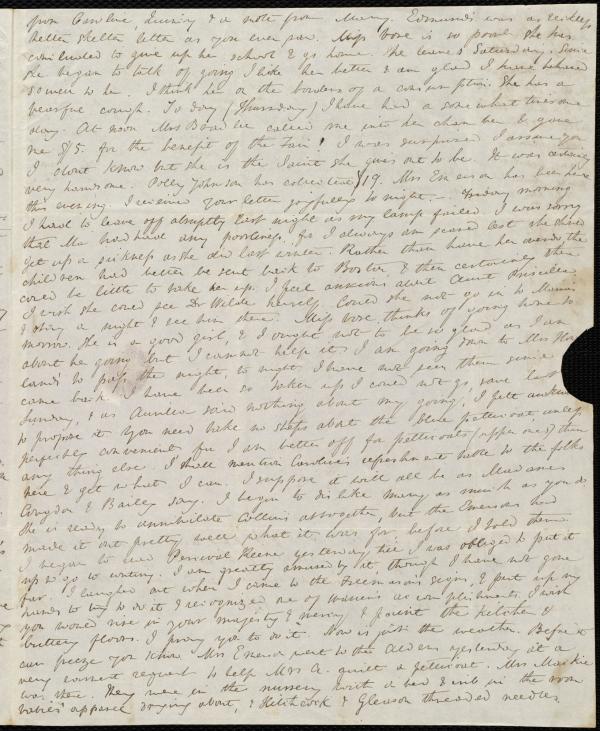 from Caroline, & a note from Mary. Edmund's was as reckless
helter skelter letter as you ever saw. Miss Vose is so poorly she has
concluded to give up her school & go home. She leaves Saturday. Since
she began to talk of going I like her better & am glad I have behaved
so well to her. I think her on the borders of a consumption. She has a
fearful cough. To day (Thursday) I have had a somewhat tiresome
day. At noon Mrs called me into her chamber & gave
me $5. for the benefit of the Fair! I was surprised I assure you
I dont know but she is the Saint she gives out to be. It was certainly
very handsome. Polly Johnson has collected $19. Mrs Emerson has been here
this evening. I received your letter joyfully to night. — Friday morning
I had to leave off abruptly last night as my lamp failed. I was sorry
that Ma had had any poorliness, for I always am scared lest she should
get up a sickness as she did last winter. Rather than have her the
children had better be sent back to Boston & then certainly there
could be little to take her up. I feel anxious about Aunt Priscilla
I wish she could see Dr Wilde herself. Could she not go in to
I a night & see him there. Miss Vose thinks of going home to
morrow. She is a good girl, & I ought not to be so glad as I am
about her going but I cannot help it. I am going down to Mrs
to pass the night, to night. I have not seen them since I
came back. I have been so taken up I could not go, save last
Sunday, & as Auntie said nothing about my going, I felt
to propose it. You need take no steps about the blue petticoat unless
perfectly convenient for I am better off for petticoats (upper ones) than
any thing else. I shall mention Caroline's refreshment table to the folks
here & get what I can. I suppose it will all be as Madames
Congdon & Bailey say. I begin to dislike Mary as much as you do.
She is ready to annihilate Collins altogether, but the Emersons had
made it out pretty well what it was for before I told them.
I began to read Percival Keene yesterday till I was obliged to put it
up to go to writing. I am greatly amused by it, though I have not gone
far. I laughed out when I came to the Freemason's signs, & put up my
hands to try to do it & recognized one of Warren's accomplishments. I wish
you would rise in your majesty & mercy & paint the kitchen &
buttery floors. I pray you to do it. Now is just the weather. Before it
can freeze you know. Mrs Emerson went to the Aldens yesterday at a
very earnest request to help Mrs A. quilt a petticoat. Mrs Mackie
was there. They were in the nursery with a bed & crib in the room
babies' apparel about, & Hitchcock & Gleason threaded needles